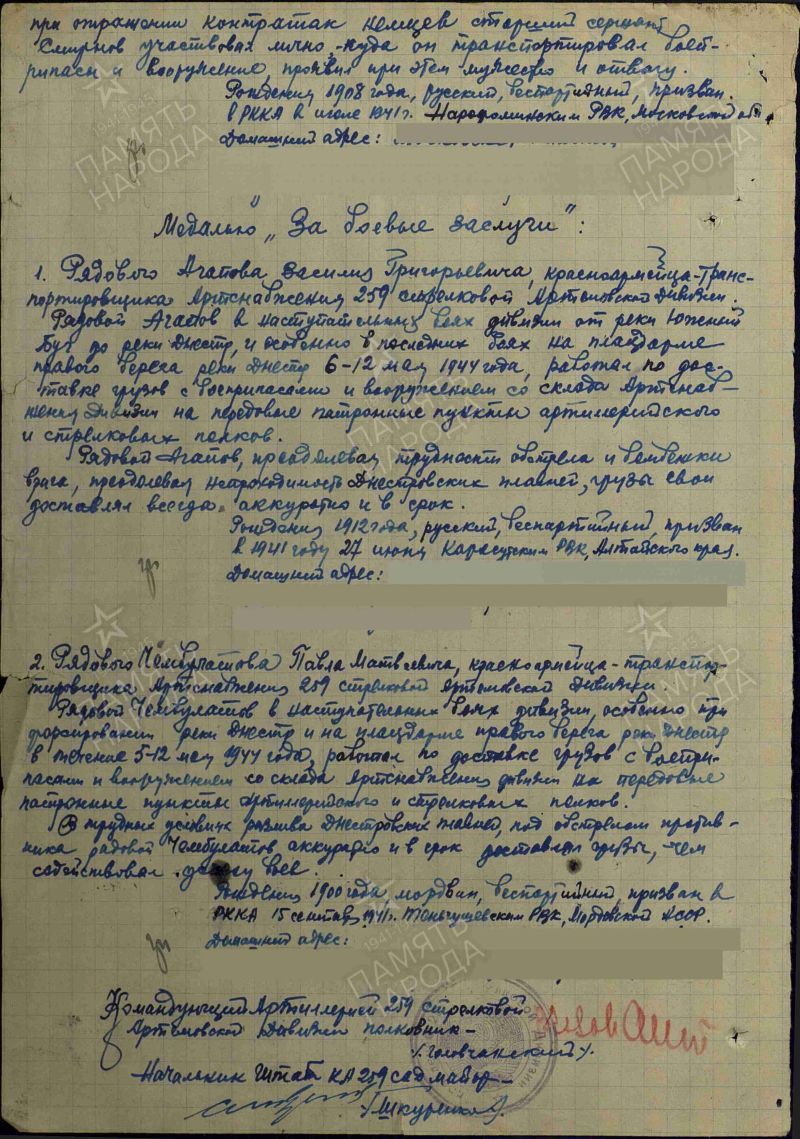 при отражении контратак немцев старший сержант
Смирнов участвовал лично, куда он транспортировал боет-
рипасы и вооружение, проявил при этом мужество и отвагу.
Рождения 1908 года, русский, беспартийный, призван
в РККА в июле 1941 г. Нарофоминским РВК, Московской обл
Домашний адрес:
Медалью „За боевые заслуги":
1. Рядового Агапова Василия Григорьевича, красноармейца-транс-
портировщика Артснабжения 259 стрелковой Артемовской Дивизии.
Рядовой Агапов в наступательных боях дивизии от реки Южный
Буг до реки Днестр, и особенно в последних боях на плацдарме
правого берега реки Днестр 6-12 мая 1944 года, работал по дос-
тавке грузов с боеприпасами и вооружением со склада Артснаб-
жения Дивизии на передовые патронные пункты артиллерийского
и стрелковых полков.
Рядовой Агапов, преодолевая трудности обстрела и бомбежки
врага, преодолевая непроходимость Днестровских плавней, грузы свои
доставлял всегда аккуратно и в срок.
Рождения 1912 года, русский, беспартийный, призван
в 1941 году 27 июня Карасукским РВК, Алтайского края.
Домашний адрес:
2. Рядового Чембулатова Павла Матвеевича, красноармейца-транспор-
тировщика Артснабжения 259 стрелковой Артемовской Дивизии.
Рядовой Чембулатов в наступательных боях дивизии, особенно при
форсировании реки Днестр и на плацдарме правого берега реки Днестр
в течение 5-12 мая 1944 года, работал по доставке грузов с боепри-
пасами и вооружением со склада Артснабжения дивизии на передовые
патронные пункты Артиллерийского и стрелковых полков.
В трудных условиях разлива Днестровских плавней, под обстрелом против-
ника рядовой Чембулатов аккуратно и в срок доставлял грузы, чем
содействовал успеху боев.
Рождения 1900 года, мордвин, беспартийный, призван в
РККА 15 сентября 1941 г. Теньгушевским РВК, Мордовской АССР.
Домашний адрес:
Командующий Артиллерией 259 стрелковой
Артемовской Дивизии полковник-
/Головчанский/.
Начальник Штаба КА 259 сад, майор-
/Шкуренков/
ПАМЯТЬ
НАРОДА